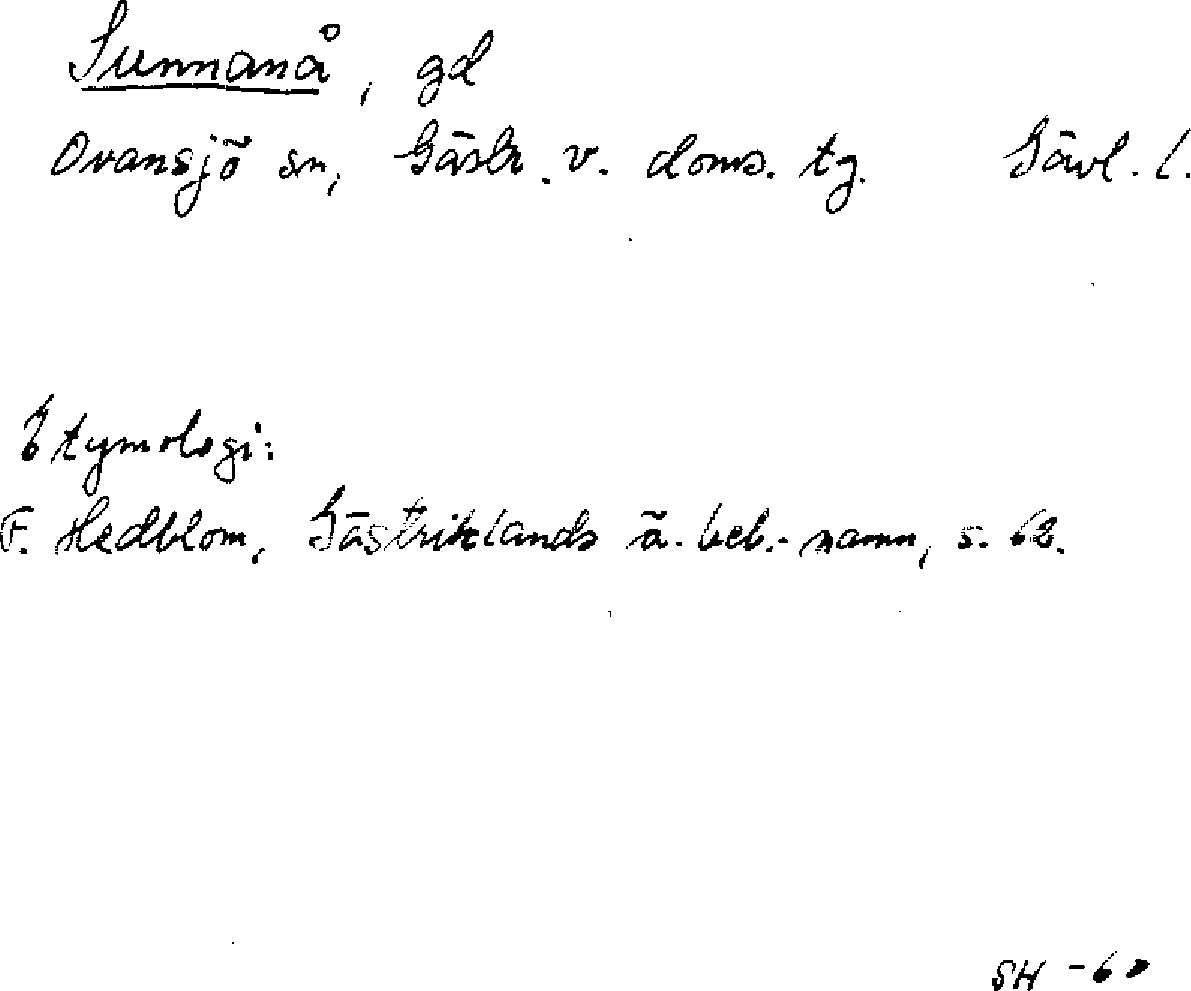 Sunnanå, gd
Ovansjö sn, Gästr. v. doms. tg. Gävl. l.
Etymologi:
F. Hedblom, Gästriklands ä. beb.-namn, s. 62.
SH -60